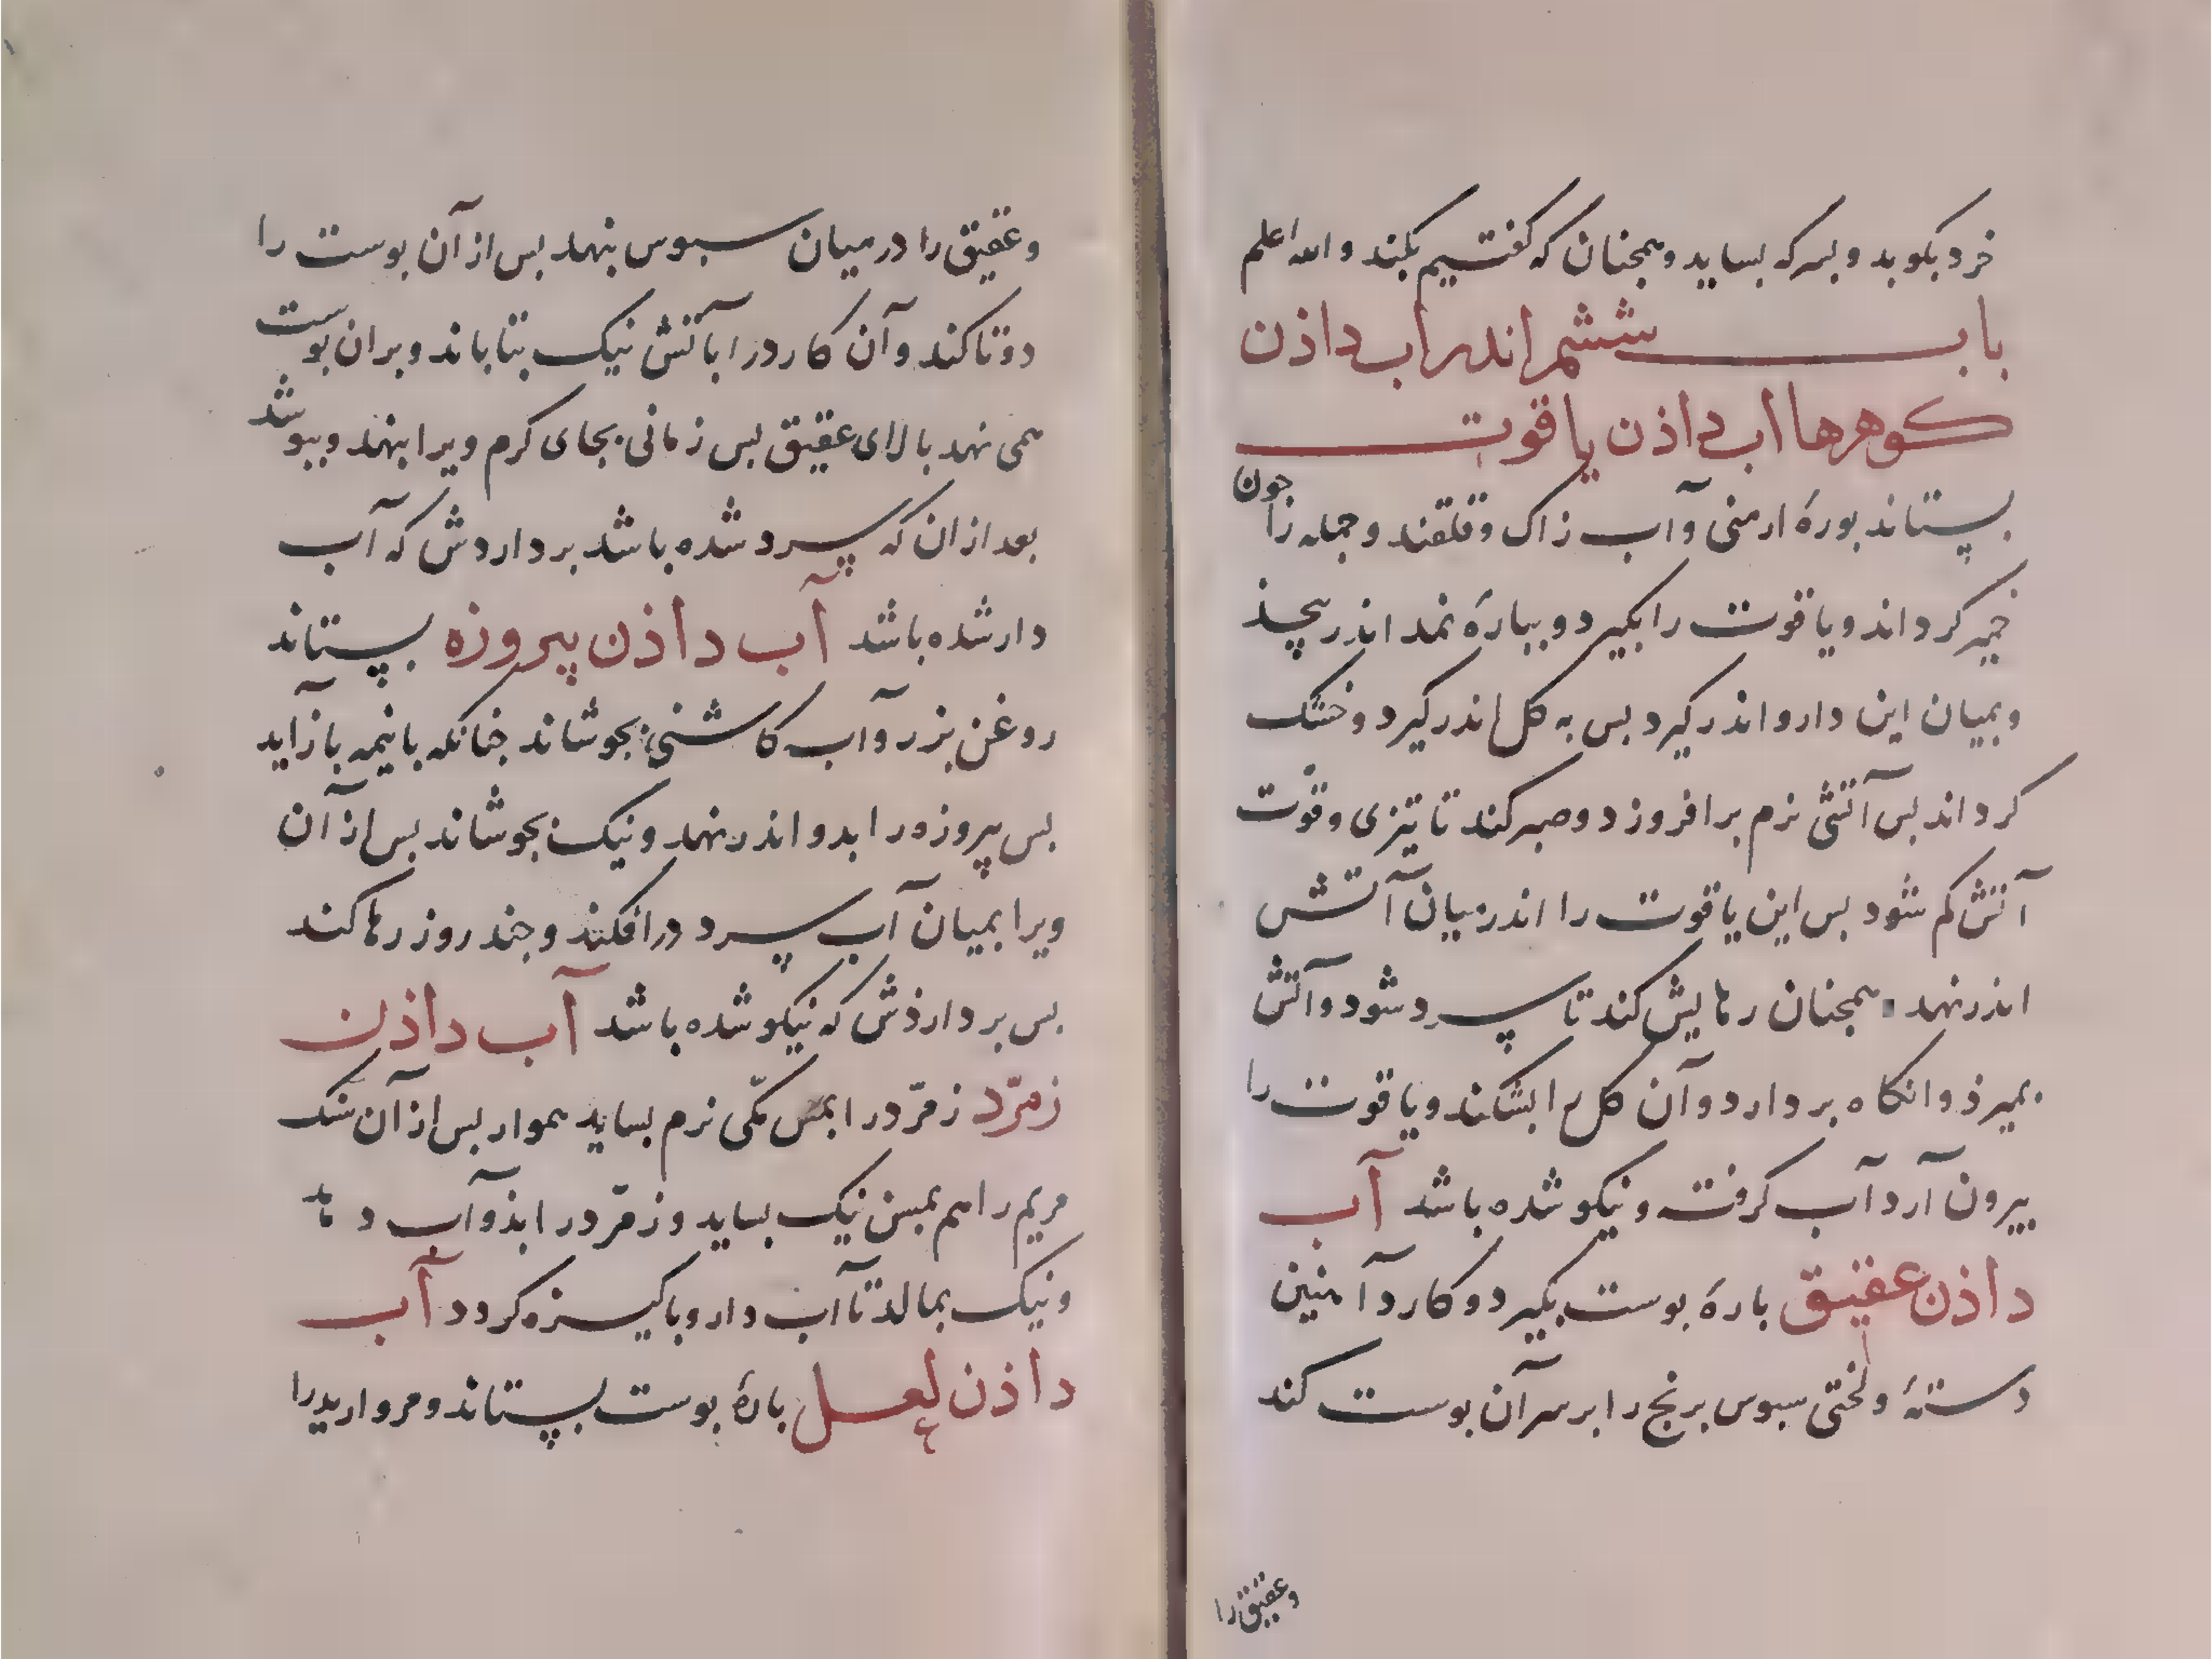 خرد بکوبد و بسرکه بساید و همجنان که کفتیم بکند والله اعلم
باب ششم اندر اب داذن
کوهرها اب داذن یاقوت
بستاند بورهٔ ارمنی و آب زاک و قلقند و جمله را جون
خمیر کرداند و یاقوت را بکیرد و بپارهٔ نمد اندر پیجذ
و بمیان این دارو اندر کیرد بس به کل اندر کیرد و خشک
کرداند بس آتشی نرم برافروزد و صبر کند تا تیزی و قوّت
آتش کم شود بس این یاقوت را اندر میان آتش
اندر نهد همجنان رهایش کند تا سرد شود و آتش
بمیرذ و انکاه بردارد و آن کل را بشکند و یاقوت را
بیرون آرد آب کرفت و نیکو شده باشد آب
داذن عقیق بارهٔ بوست بکیرد و کارد آهنین
دستهٔ و لختی سبوس برنج را بر سر آن بوست کند
وعقیق را
وعقیق را در میان سبوس بنهد بس از آن بوست را
دوتا کند و آن کارد را بآتش نیک بتاباند و بران بوست
همی نهد بالای عقیق بس زمانی بجای کرم ویرا بنهد و ببوشد
بعد ازان که سرد شده باشد برداردش که آب
دار شده باشد آب داذن پیروزه بستاند
روغن بزر و آب کاشنی بجوشاند جنانکه بانیمه بازآید
بس پیروزه را بدو اندر نهد و نیک بجوشاند بس از آن
ویرا بمیان آب سرد درافکند و جند روز رها کند
بس برداردش که نیکو شده باشد آب داذن
زمرّد زمرّد را بمس مکّی نرم بساید هموار بس از آن سنک
مریم را هم بمسن نیک بساید و زمرّد را بذو آب دهد
و نیک بمالد تا آب دار و باکیزه کردد آب
داذن لعل بارهٔ بوست بستاند و مروارید را